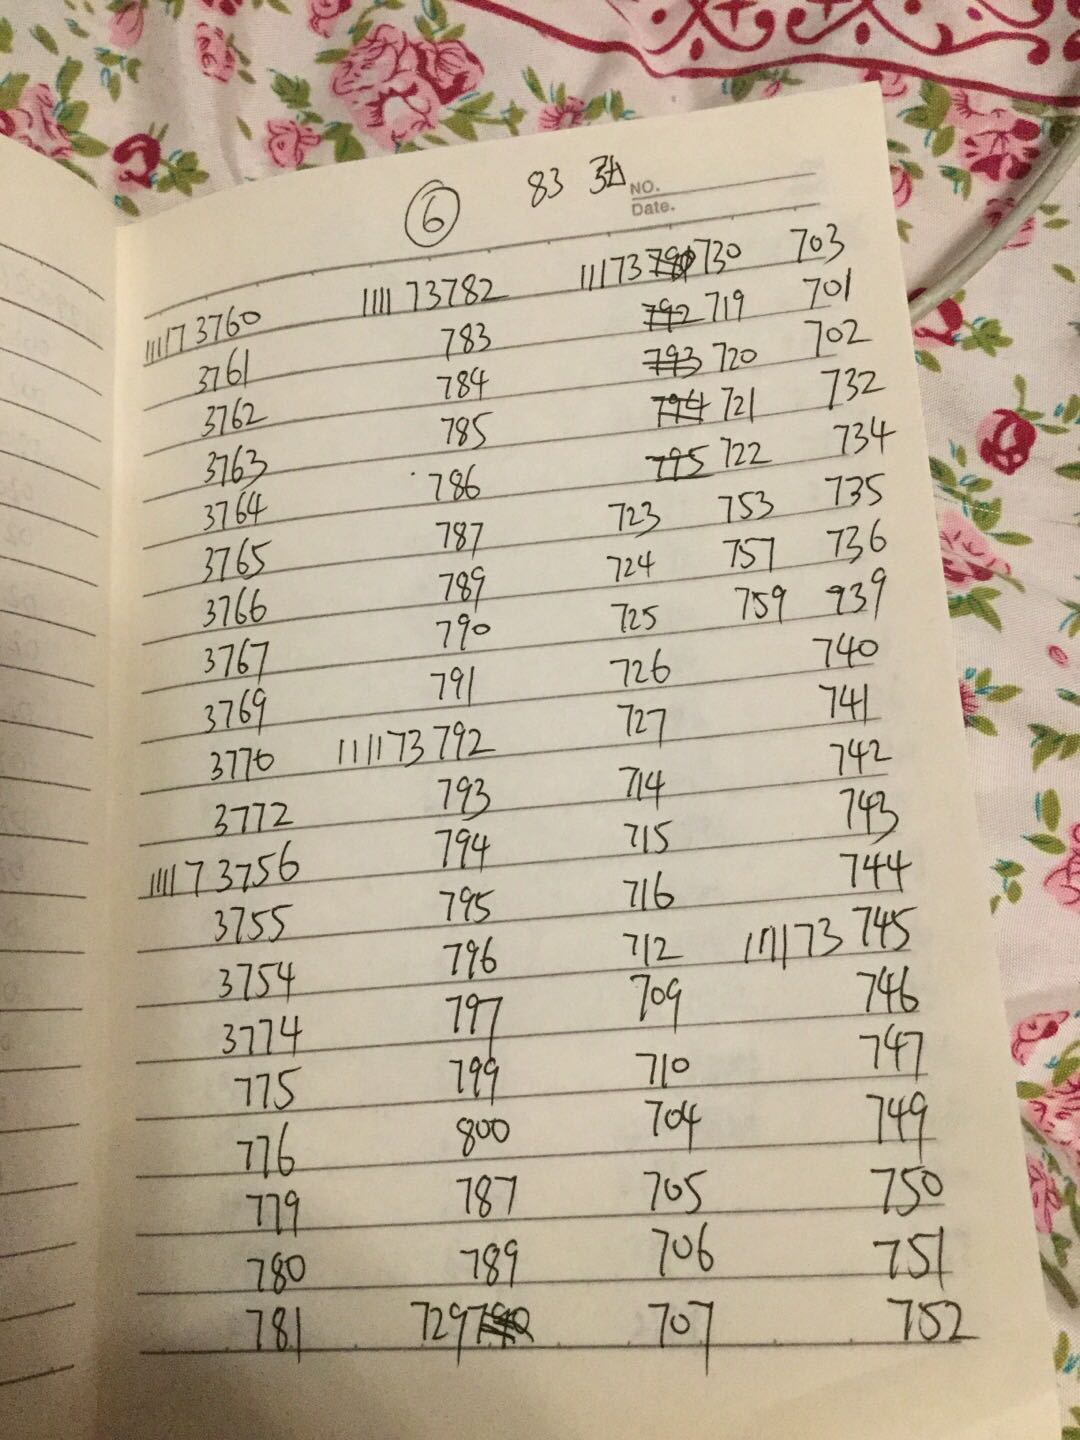 ⑥ 83 张 NO.
Date.
111173760 1111 73782 11173 730 703
3761 783 719 701
3762 784 793 720 702
3763 785 794 721 732
3764 786 795 722 734
3765 787 723 753 735
3766 789 724 757 736
3767 790 725 759 939
3769 791 726 740
3770 111173792 727 741
3772 793 714 742
1111 73756 794 715 743
3755 795 716 744
3754 796 712 111173 745
3774 797 709 746
775 799 710 747
776 800 704 749
779 787 705 750
780 789 706 751
781 729 707 752